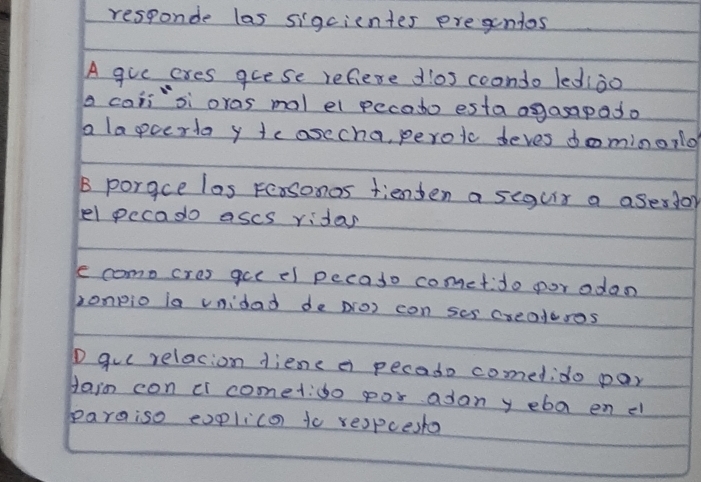 responde las sigcientes pregntos
A que cres qce se refiere dios coondo ledijo
a caín "si oras mal el pecado esta agasapado
a la pcerta y te asecha, pero tc deves dominarlo
B porqce las Personas tienden a seguir a asertar
el pecado ascs vidas
C como cres qce el pecado cometido por adan
ronpio la unidad de Dios con scs creaturas
D que relacion tiene el pecado cometido por
cain con el cometido por adan y eba en el
paraiso esplica tc respcesta